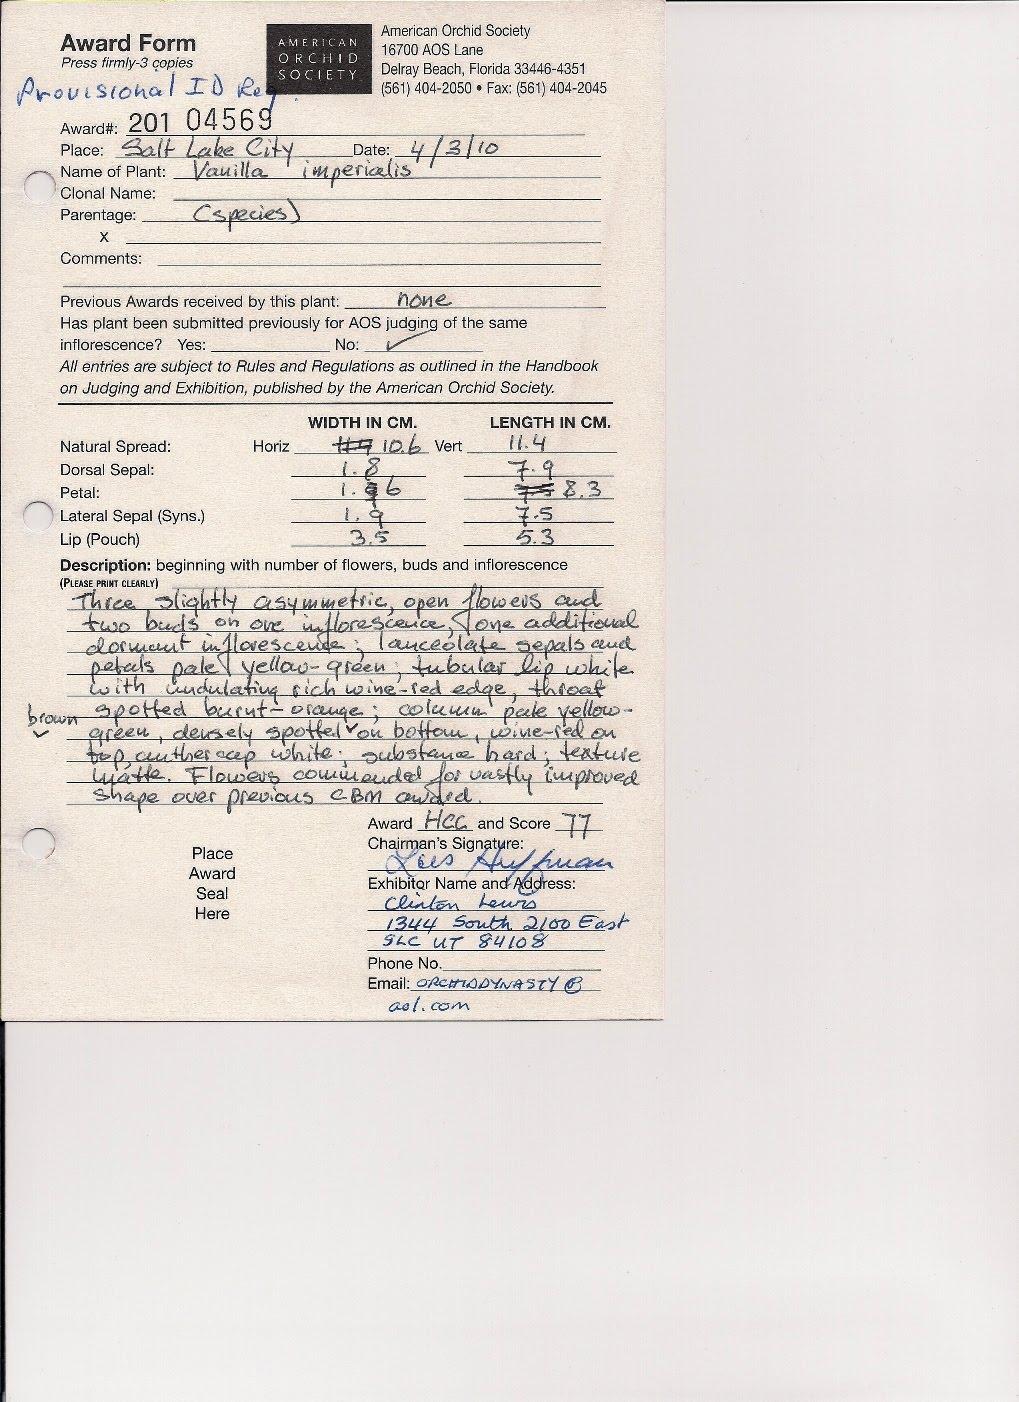 Award Form
Press firmly-3 copies
AMERICAN
ORCHID
SOCIETY
American Orchid Society
16700 AOS Lane
Delray Beach, Florida 33446-4351
(561) 404-2050 • Fax: (561) 404-2045
Provisional ID Req
Award#: 201 04569
Place: Salt Lake City Date: 4/3/10
Name of Plant: Vanilla imperialis
Clonal Name:
Parentage: (species)
X
Comments:
Previous Awards received by this plant: none
Has plant been submitted previously for AOS judging of the same
inflorescence? Yes: No: ✓
All entries are subject to Rules and Regulations as outlined in the Handbook
on Judging and Exhibition, published by the American Orchid Society.
WIDTH IN CM. LENGTH IN CM.
Natural Spread: Horiz 10.6 Vert 11.4
Dorsal Sepal: 1.8 7.9
Petal: 1.6 8.3
Lateral Sepal (Syns.) 1.9 7.5
Lip (Pouch) 3.5 5.3
Description: beginning with number of flowers, buds and inflorescence
(PLEASE PRINT CLEARLY)
Three slightly asymmetric, open flowers and
two buds on one inflorescence, one additional
dormant inflorescence; lanceolate sepals and
petals pale yellow-green; tubular lip white
with undulating rich wine-red edge, throat
spotted burnt-orange; column pale yellow-
brown
green, densely spotted ✓ on bottom, wine-red on
top, anther cap white; substance hard; texture
matte. Flowers commended for vastly improved
shape over previous CBM award.
Award HCC and Score 77
Chairman's Signature:
Lois Huffman
Place
Award
Seal
Here
Exhibitor Name and Address:
Clinton Lewis
1344 South 2100 East
SLC UT 84108
Phone No.
Email: ORCHIDDYNASTY @
aol.com